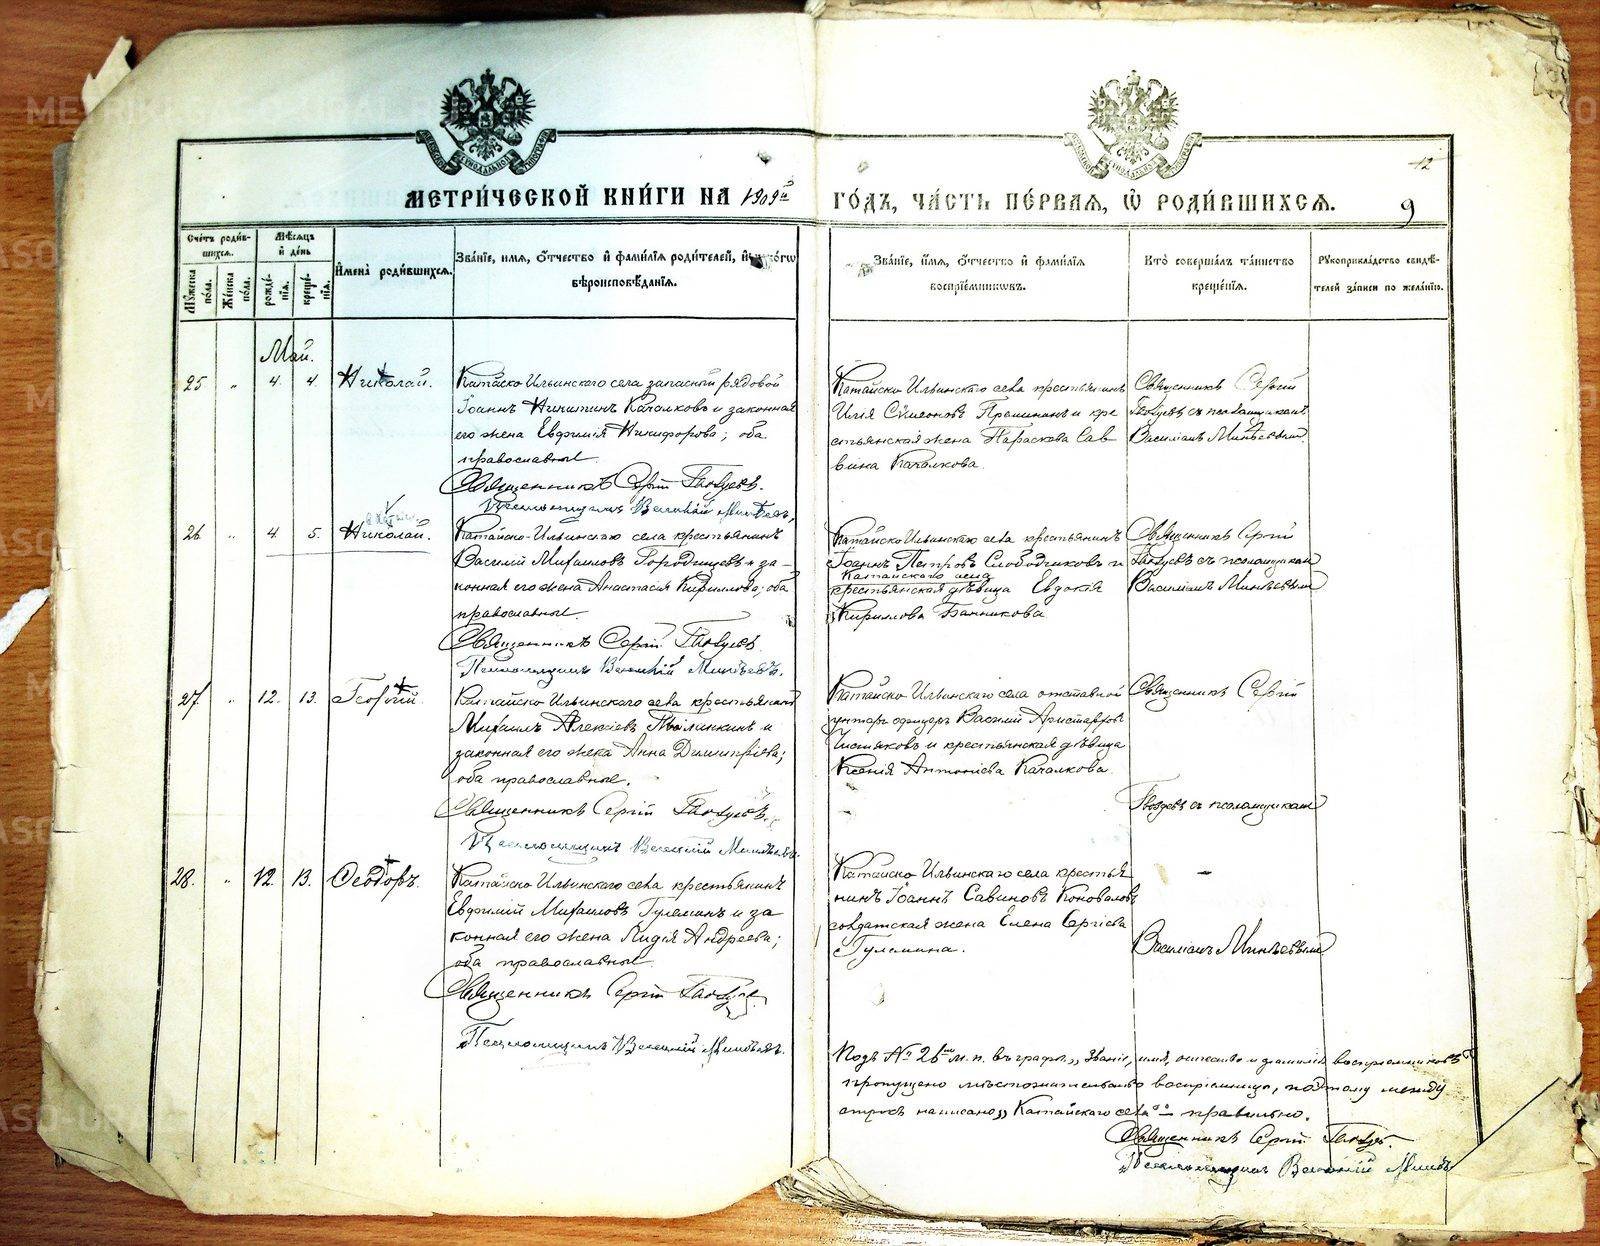 МЕТРИ́ЧЕСКОЙ КНИ́ГИ НА 1909й ГО́ДЪ, ЧА́СТЬ ПЕ́РВАЯ, Ѿ РОДИ́ВШИХСЯ.
12
9
Сче́тъ роди́вшихся.
Мꙋжеска по́ла.
Же́нска по́ла.
Мѣ́сяцъ и де́нь
рожде́нїя.
креще́нїя.
И҆мена̀ роди́вшихся.
Зва́нїе, имя, ѻ҆́тчество и҆ фами́лїя роди́телей, и҆
вѣроисповѣ́данїя.
Зва́нїе, и҆́мя, ѻ҆́тчество и҆ фами́лїя
воспрїе́мниковъ.
Кто̀ соверша́лъ та́инство
креще́нїя.
Рꙋкоприкла́дство свидѣ́-
телей за́писи по жела́нїю.
Май.
25 " 4. 4. Николай.
Катайско Ильинскаго села запасный рядовой
Іоаннъ Никитинъ Качалковъ и законная
его жена Евфимія Никифорова; оба
православные.
Священникъ Сергій
Псаломщикъ Василій Минѣевъ.
Катайско Ильинскаго села крестьянинъ
Илія Сѵмеоновъ и кре
стьянская жена Параскева Сав
вина Качалкова.
Священникъ Сергій
съ псаломщикомъ
Василіемъ Минѣевымъ.
26 " 4. 5. Николай.
Катайско-Ильинскаго села крестьянинъ
Василій Михаиловъ Городищевъ и за-
конная его жена Анастасія Кириллова; оба
православные.
Священникъ Сергій
Псаломщикъ Василій Минѣевъ.
Катайско Ильинскаго села крестьянинъ
Іоаннъ Петровъ Слободчиковъ и
Катайскаго села
крестьянская дѣвица Евдокія
Кириллова Банникова
Священникъ Сергій
съ псаломщикомъ
Василіемъ Минѣевымъ
27 " 12. 13. Георгій.
Катайско Ильинскаго села крестьянинъ
Михаилъ Алексіевъ и
законная его жена Анна Димитріева;
оба православные.
Священникъ Сергій
Псаломщикъ Василій Минѣевъ.
Катайско Ильинскаго села отставной
унтеръ офицеръ Василій Аристарховъ
Чистяковъ и крестьянская дѣвица
Ксенія Антоніева Качалкова.
Священникъ Сергій
съ псаломщикомъ
28. " 12. 13. Ѳеодоръ.
Катайско Ильинскаго села крестьянинъ
Евфимій Михаиловъ Гулеминъ и за
конная его жена Лидія Андреева;
оба православные.
Священникъ Сергій
Псаломщикъ Василій Минѣевъ.
Катайско Ильинскаго села крестья
нинъ Іоаннъ Савиновъ Коноваловъ
солдатская жена Елена Сергіева
Гулемина.
Василіемъ Минѣевымъ
Подъ № 26мъ м. п. въ графѣ „Званіе, имя, отчество и фамилія воспріемниковъ"
пропущено мѣстожительство воспріемницы, поэтому между
строкъ написано „Катайскаго села" правильно.
Священникъ Сергій
Псаломщикъ Василій Минѣевъ